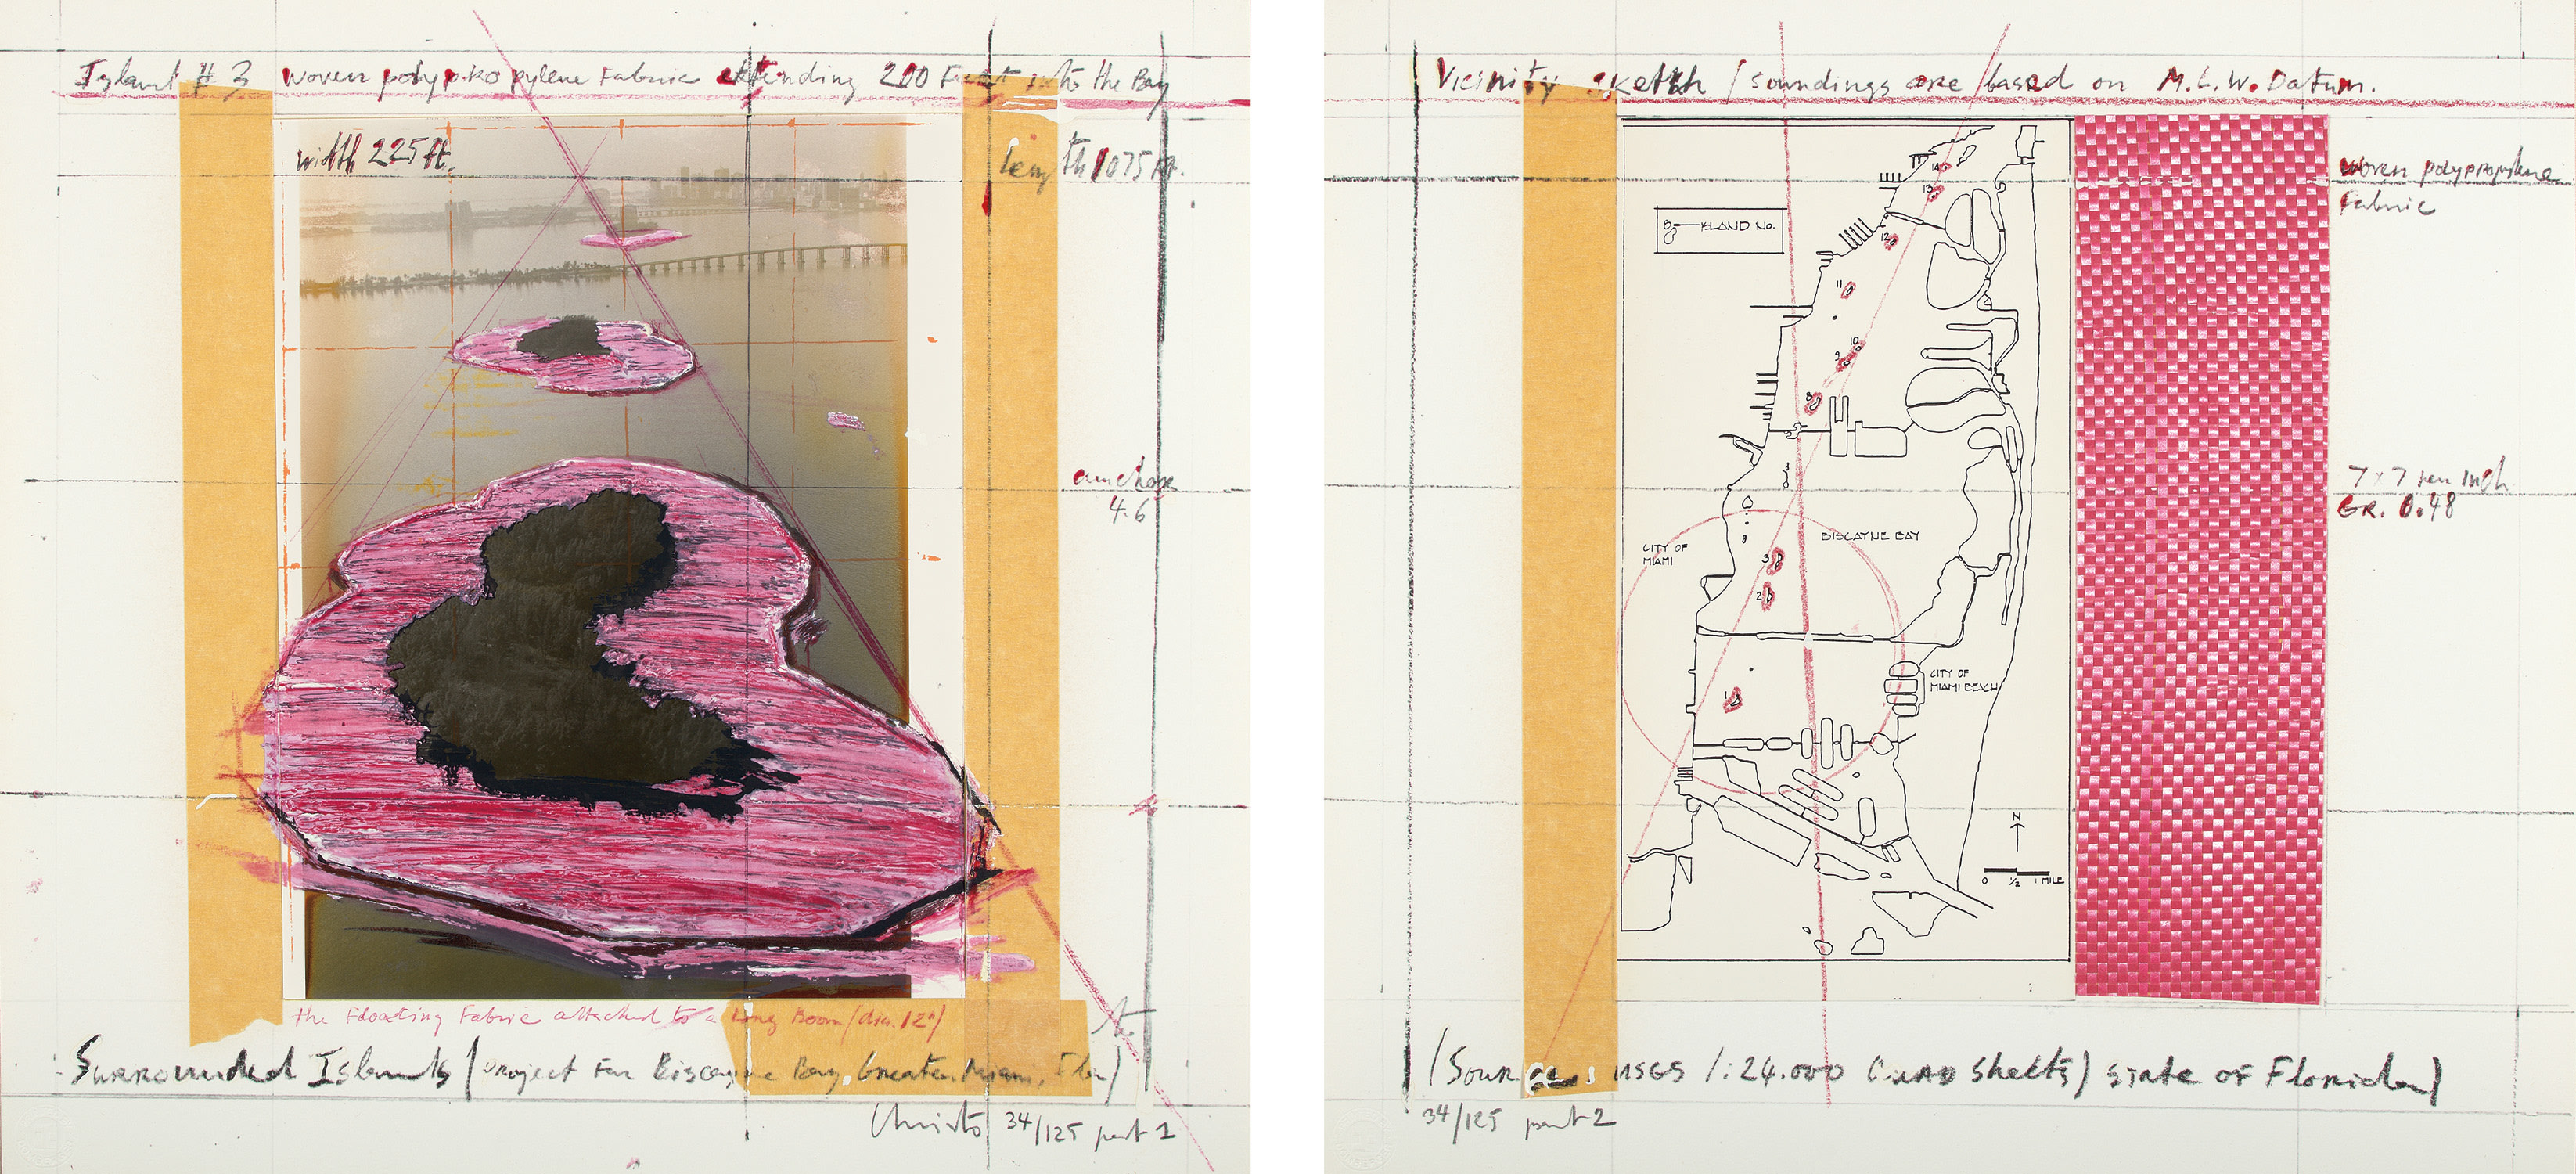 Island # 3 woven polypropylene Fabric extending 200 Feet into the Bay
width 225 ft.
length 1075 ft.
anchors
4.6
the Floating Fabric attached to a Long Boom (dia. 12")
Surrounded Islands (project for Biscayne Bay, Greater Miami, Florida)
Christo 34/125 part 1
Vicinity sketch / soundings are based on M.L.W. Datum.
woven polypropylene
Fabric
ISLAND NO.
14
13
12
11
10
9
8
7 x 7 per inch
GR. 0.48
BISCAYNE BAY
CITY OF
MIAMI
3
2
1
CITY OF
MIAMI BEACH
N
0 1/2 1 MILE
(Source: USGS 1:24.000 QUAD sheets) state of Florida)
34/125 part 2